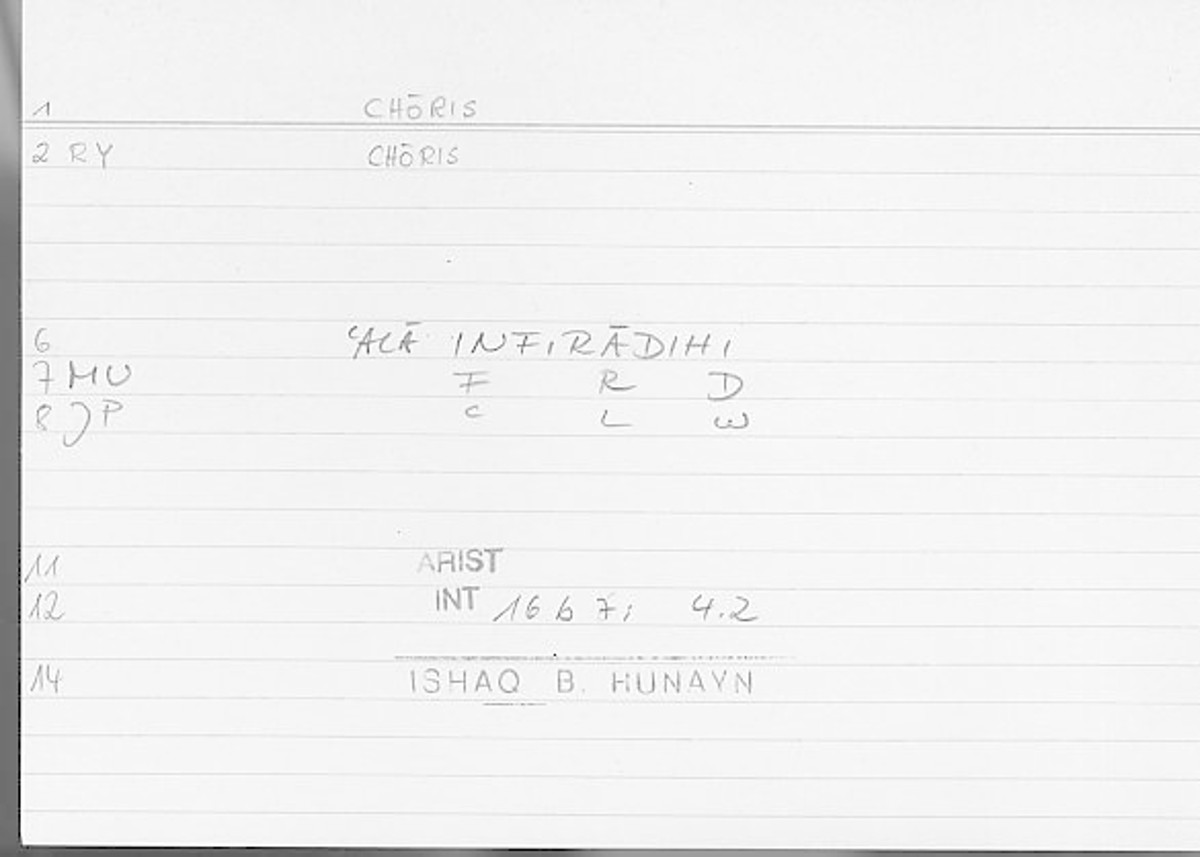 1 CHŌRIS
2 RY CHŌRIS
6 ʿALĀ INFIRĀDIHI
7 MU F R D
8 JP C L W
11 ARIST
12 INT 16 b 7; 4.2
14 ISHAQ B. HUNAYN